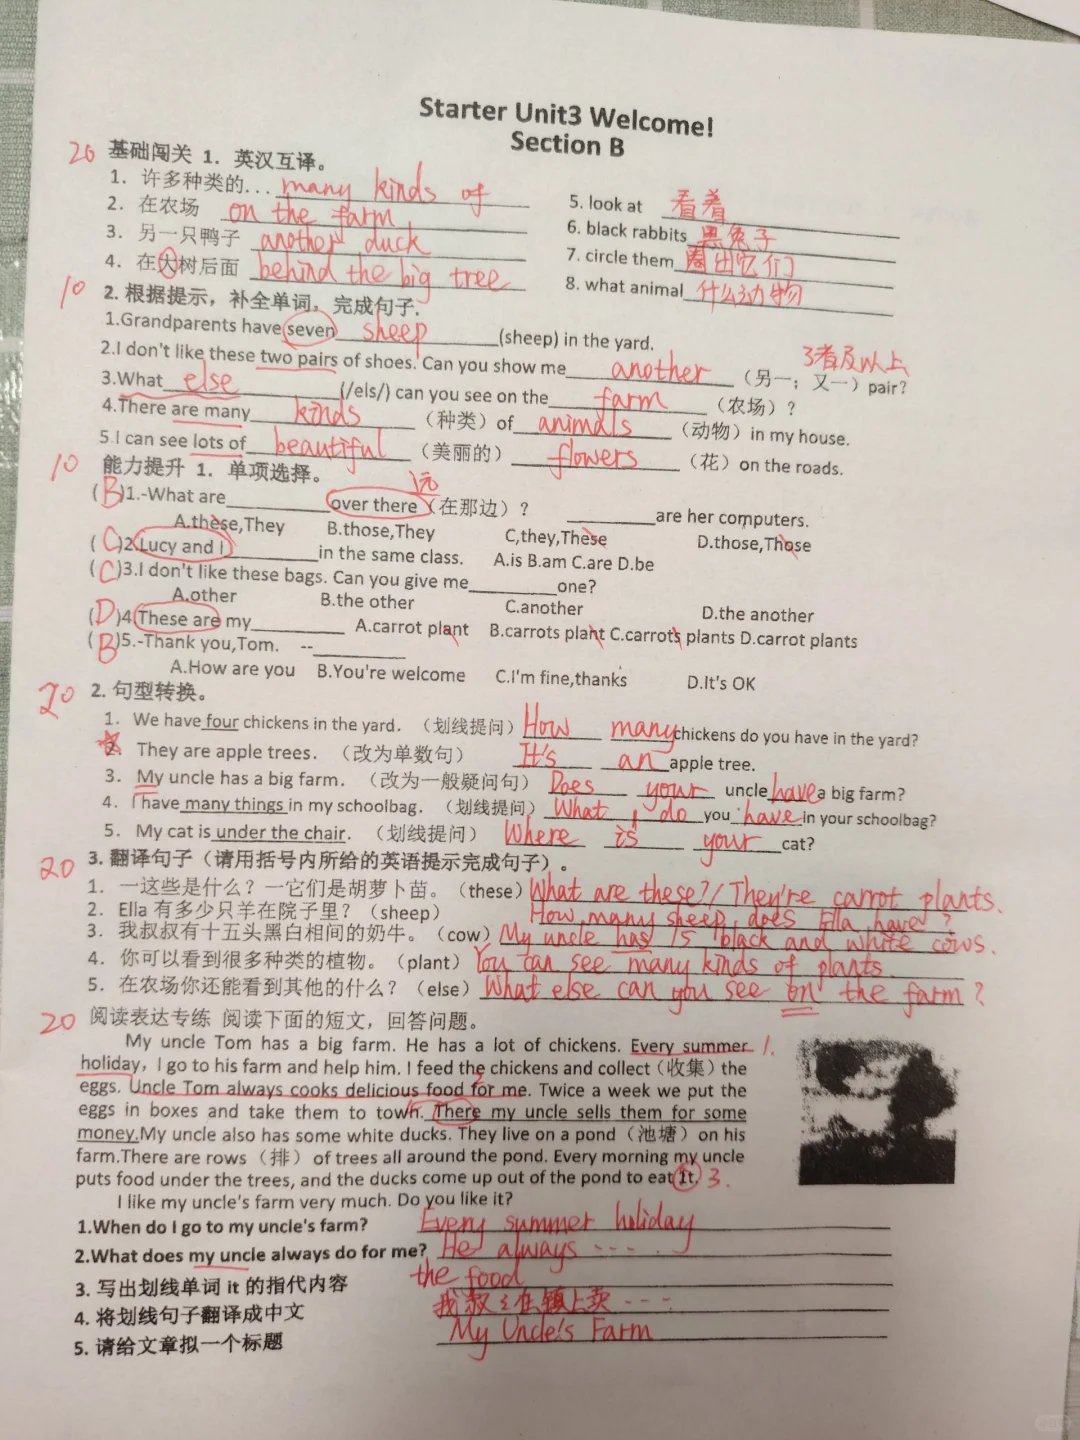 Starter Unit3 Welcome!
Section B
20 基础闯关 1. 英汉互译。
1. 许多种类的... many kinds of
2. 在农场 on the farm
3. 另一只鸭子 another duck
4. 在大树后面 behind the big tree
5. look at 看着
6. black rabbits 黑兔子
7. circle them 圈出它们
8. what animal 什么动物
10 2. 根据提示，补全单词，完成句子.
1.Grandparents have seven sheep (sheep) in the yard.
3者及以上
2.I don't like these two pairs of shoes. Can you show me another (另一；又一) pair?
3.What else (/els/) can you see on the farm (农场)?
4.There are many kinds (种类) of animals (动物) in my house.
5 I can see lots of beautiful (美丽的) flowers (花) on the roads.
10 能力提升 1. 单项选择。
远
(B)1.-What are________over there (在那边)? ________are her computers.
A.these,They B.those,They C,they,These D.those,Those
(C)2.Lucy and I________in the same class. A.is B.am C.are D.be
(C)3.I don't like these bags. Can you give me________one?
A.other B.the other C.another D.the another
(D)4.These are my________ A.carrot plant B.carrots plant C.carrots plants D.carrot plants
(B)5.-Thank you,Tom. --________
A.How are you B.You're welcome C.I'm fine,thanks D.It's OK
20 2. 句型转换。
1. We have four chickens in the yard. (划线提问) How many chickens do you have in the yard?
2 They are apple trees. (改为单数句) It's an apple tree.
3. My uncle has a big farm. (改为一般疑问句) Does your uncle have a big farm?
4. I have many things in my schoolbag. (划线提问) What do you have in your schoolbag?
5. My cat is under the chair. (划线提问) Where is your cat?
20 3. 翻译句子（请用括号内所给的英语提示完成句子）。
1. 一这些是什么？一它们是胡萝卜苗。(these) What are these?/ They're carrot plants.
2. Ella 有多少只羊在院子里？(sheep) How many sheep does Ella have?
3. 我叔叔有十五头黑白相间的奶牛。(cow) My uncle has 15 black and white cows.
4. 你可以看到很多种类的植物。(plant) You can see many kinds of plants
5. 在农场你还能看到其他的什么？(else) What else can you see on the farm?
20 阅读表达专练 阅读下面的短文，回答问题。
My uncle Tom has a big farm. He has a lot of chickens. Every summer 1.
holiday, I go to his farm and help him. I feed the chickens and collect (收集) the
eggs. Uncle Tom always cooks delicious food for me. Twice a week we put the
eggs in boxes and take them to town. There my uncle sells them for some
money.My uncle also has some white ducks. They live on a pond (池塘) on his
farm.There are rows (排) of trees all around the pond. Every morning my uncle
puts food under the trees, and the ducks come up out of the pond to eat it. 3.
I like my uncle's farm very much. Do you like it?
1.When do I go to my uncle's farm? Every summer holiday
2.What does my uncle always do for me? He always ....
3. 写出划线单词 it 的指代内容 the food
4. 将划线句子翻译成中文 我叔叔在镇上卖 ...
5. 请给文章拟一个标题 My Uncle's Farm